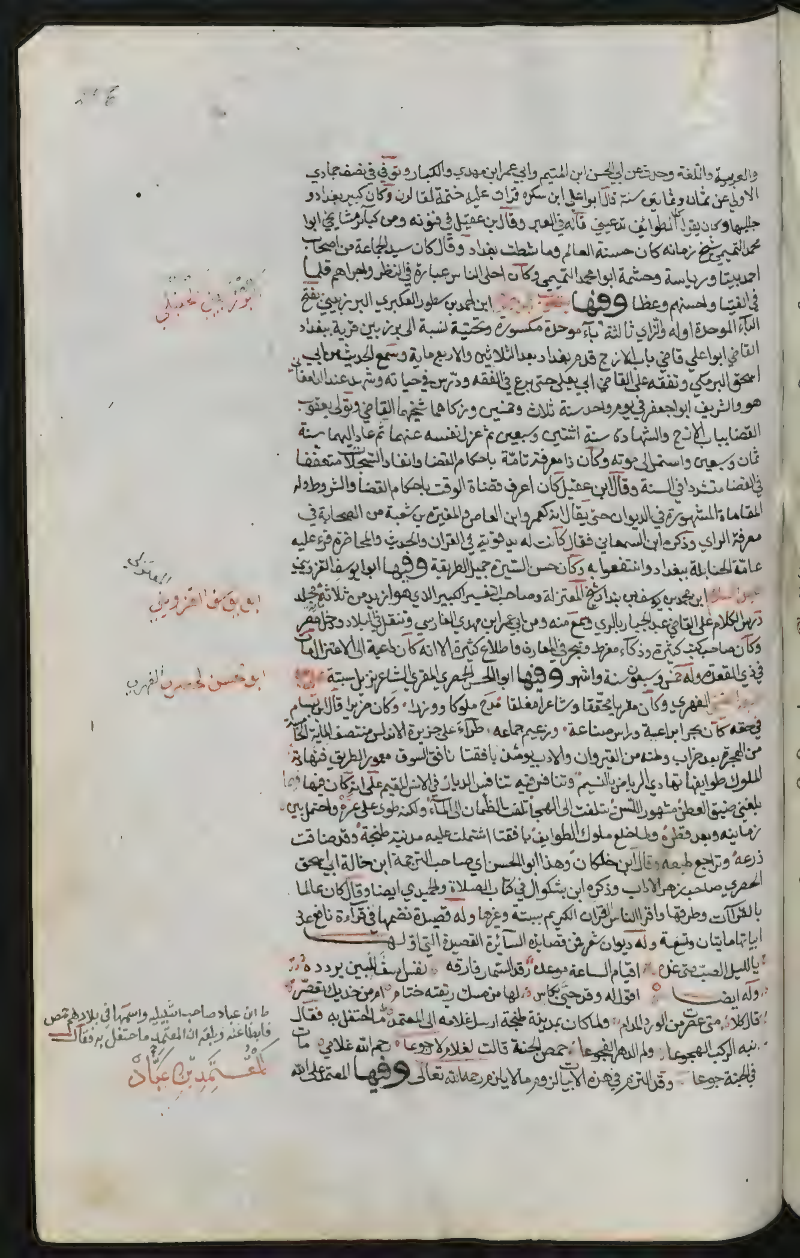 والعربية واللغة وحدث عن ابي الحسن ابن المتيم وابي عمر ابن مهدي والكبار وتوفي في نصف جمادي
الاولي عن ثمان وثمانين سنة قال ابو علي ابن سكرة قرات عليه ختمة لقالون وكان كبير بغداد و
جليلها وكان يقول كل الطوايف تدعيني قاله في العبر وقال ابن عقيل في فنونه ومن كبار مشايخي ابوا
محمد التميمي شيخ زمانه كان حسنة العالم وماشطة بغداد وقال كان سيد الجماعة من اصحاب
احمد بيتا ورياسة وحشمة ابوا محمد التميمي وكان احلى الناس عبارة في النظر واجراهم قلما
في الفتيا واحسنهم وعظا وفيها ابن احمد بن سطور العكبري البرزبيني بفتح
الباء الموحدة اوله والزاي ثالثة باء موحدة مكسورة وتحتية نسبة الى برزبين قرية ببغداد
القاضي ابوا علي قاضي باب الازج قدم بغداد بعد الثلاثين والاربع ماية وسمع الحديث من ابي
اسحق البرمكي وتفقه على القاضي ابي يعلى حتى برع في الفقه ودرس في حياته وشهد عند الدامغاني
هو والشريف ابوا جعفر في يوم واحد سنة ثلاث وخمسين وزكاهما شيخهما القاضي وتولى يعقوب
القضا بباب الازج والشهادة سنة اثنتين وسبعين ثم عزل نفسه عنهما ثم عاد اليهما سنة
ثمان وسبعين واستمر الى موته وكان ذا معرفة تامة باحكام القضا وانفاذ السجلات متعففا
في القضا متشددا في السنة وقال ابن عقيل كان اعرف قضاة الوقت باحكام القضا والشروط وله
المقامات المشهورة في الديوان حتى يقال انه كعمرو ابن العاص والمغيرة بن شعبة من الصحابة في
معرفة الراي وذكره ابن السمعاني فقال كانت له يد قوية في القران والحديث والمحاضرة قرء عليه
عامة الحنابلة ببغداد وانتفعوا به وكان حسن السيرة جميل الطريقة وفيها ابوا يوسف القزويني
عبد السلام ابن محمد بن يوسف بن بندار شيخ المعتزلة وصاحب التفسير الكبير الذي هو ازيد من ثلاثماية مجلد
درس الكلام على القاضي عبد الجبار بالري وسمع منه ومن ابي عمر ابن مهدي الفارسي وتنقل في البلاد ودخل مصر
وكان صاحب كتب كثيرة وذكاء مفرط وتبحر في المعارف واطلاع كثير الا انه كان داعية الى الاعتزال مات
في ذي القعدة وله خمس وتسعون سنة واشهر وفيها ابوا الحسن الحصري المقري الشاعر نزيل سبتة
الفهري وكان مقريا محققا وشاعرا مفلقا مدح ملوكا ووزرا وكان ضريرا قال ابن بسام
في حقه كان بحر براعة وراس صناعة وزعيم جماعة طراء على جزيرة الاندلس منتصف الماية الخامسة
من الهجرة بعد خراب وطنه من القيروان والادب يومئذ بافقنا نافق السوق معمور الطريق فتهادته
الملوك طوايفها تهادي الرياض بالنسيم وتنافسوا فيه تنافس الديار في الانس المقيم على انه كان فيما
بلغني ضيق العطن مشهور اللسن يتلفت الى الهجاء تلفت الظمان الى الماء ولكنه طوى على غره واحتمل بين
زمانته وبعد قطره ولما خلع ملوك الطوايف بافقنا اشتملت عليه مدينة طنجة وقد ضاقت
ذرعه وتراجع طبعه وقال ابن خلكان وهذا ابو الحسن اي صاحب الترجمة ابن خالة ابي اسحق
الحصري صاحب زهر الاداب وذكره ابن بشكوال في كتاب الصلاة والحميدي ايضا وقال كان عالما
بالقراآت وطرقها واقرا الناس القران الكريم بسبتة وغيرها وله قصيدة نظمها في قراءة نافع عدد
ابياتها مايتان وتسعة وله ديوان شعر فمن قصايده السائرة القصيدة التي اولها
يا ليل الصب متى غده اقيام الساعة موعده رقد السمار فارقه اسف للبين يردده
وله ايضا اقول له وقد حيى بكاس لها من مسك ريقته ختام امن خديك تعصر
قال كلا متى عصرت من الورد المدام ولما كان بمدينة طنجة ارسل غلامه الى المعتمد ما احتفل به فقال
نبه الركب الهجوعا ولم الدهر الفجوعا حمص الجنة قالت لغلامي لا رجوعا رحم الله غلامي مات
في الجنة جوعا وقد التزم في هذه الابيات لزوم ما لا يلزم رحمه الله تعالى وفيها المعتمد على الله
ابو يوسف القزويني
المعتزلي
ابو الحسن الحصري الفهري
ابن عباد صاحب اشبيلية واسمها في بلادهم حمص
فابطا عنه وبلغه ان المعتمد ما احتفل به فقال
المعتمد بن عباد